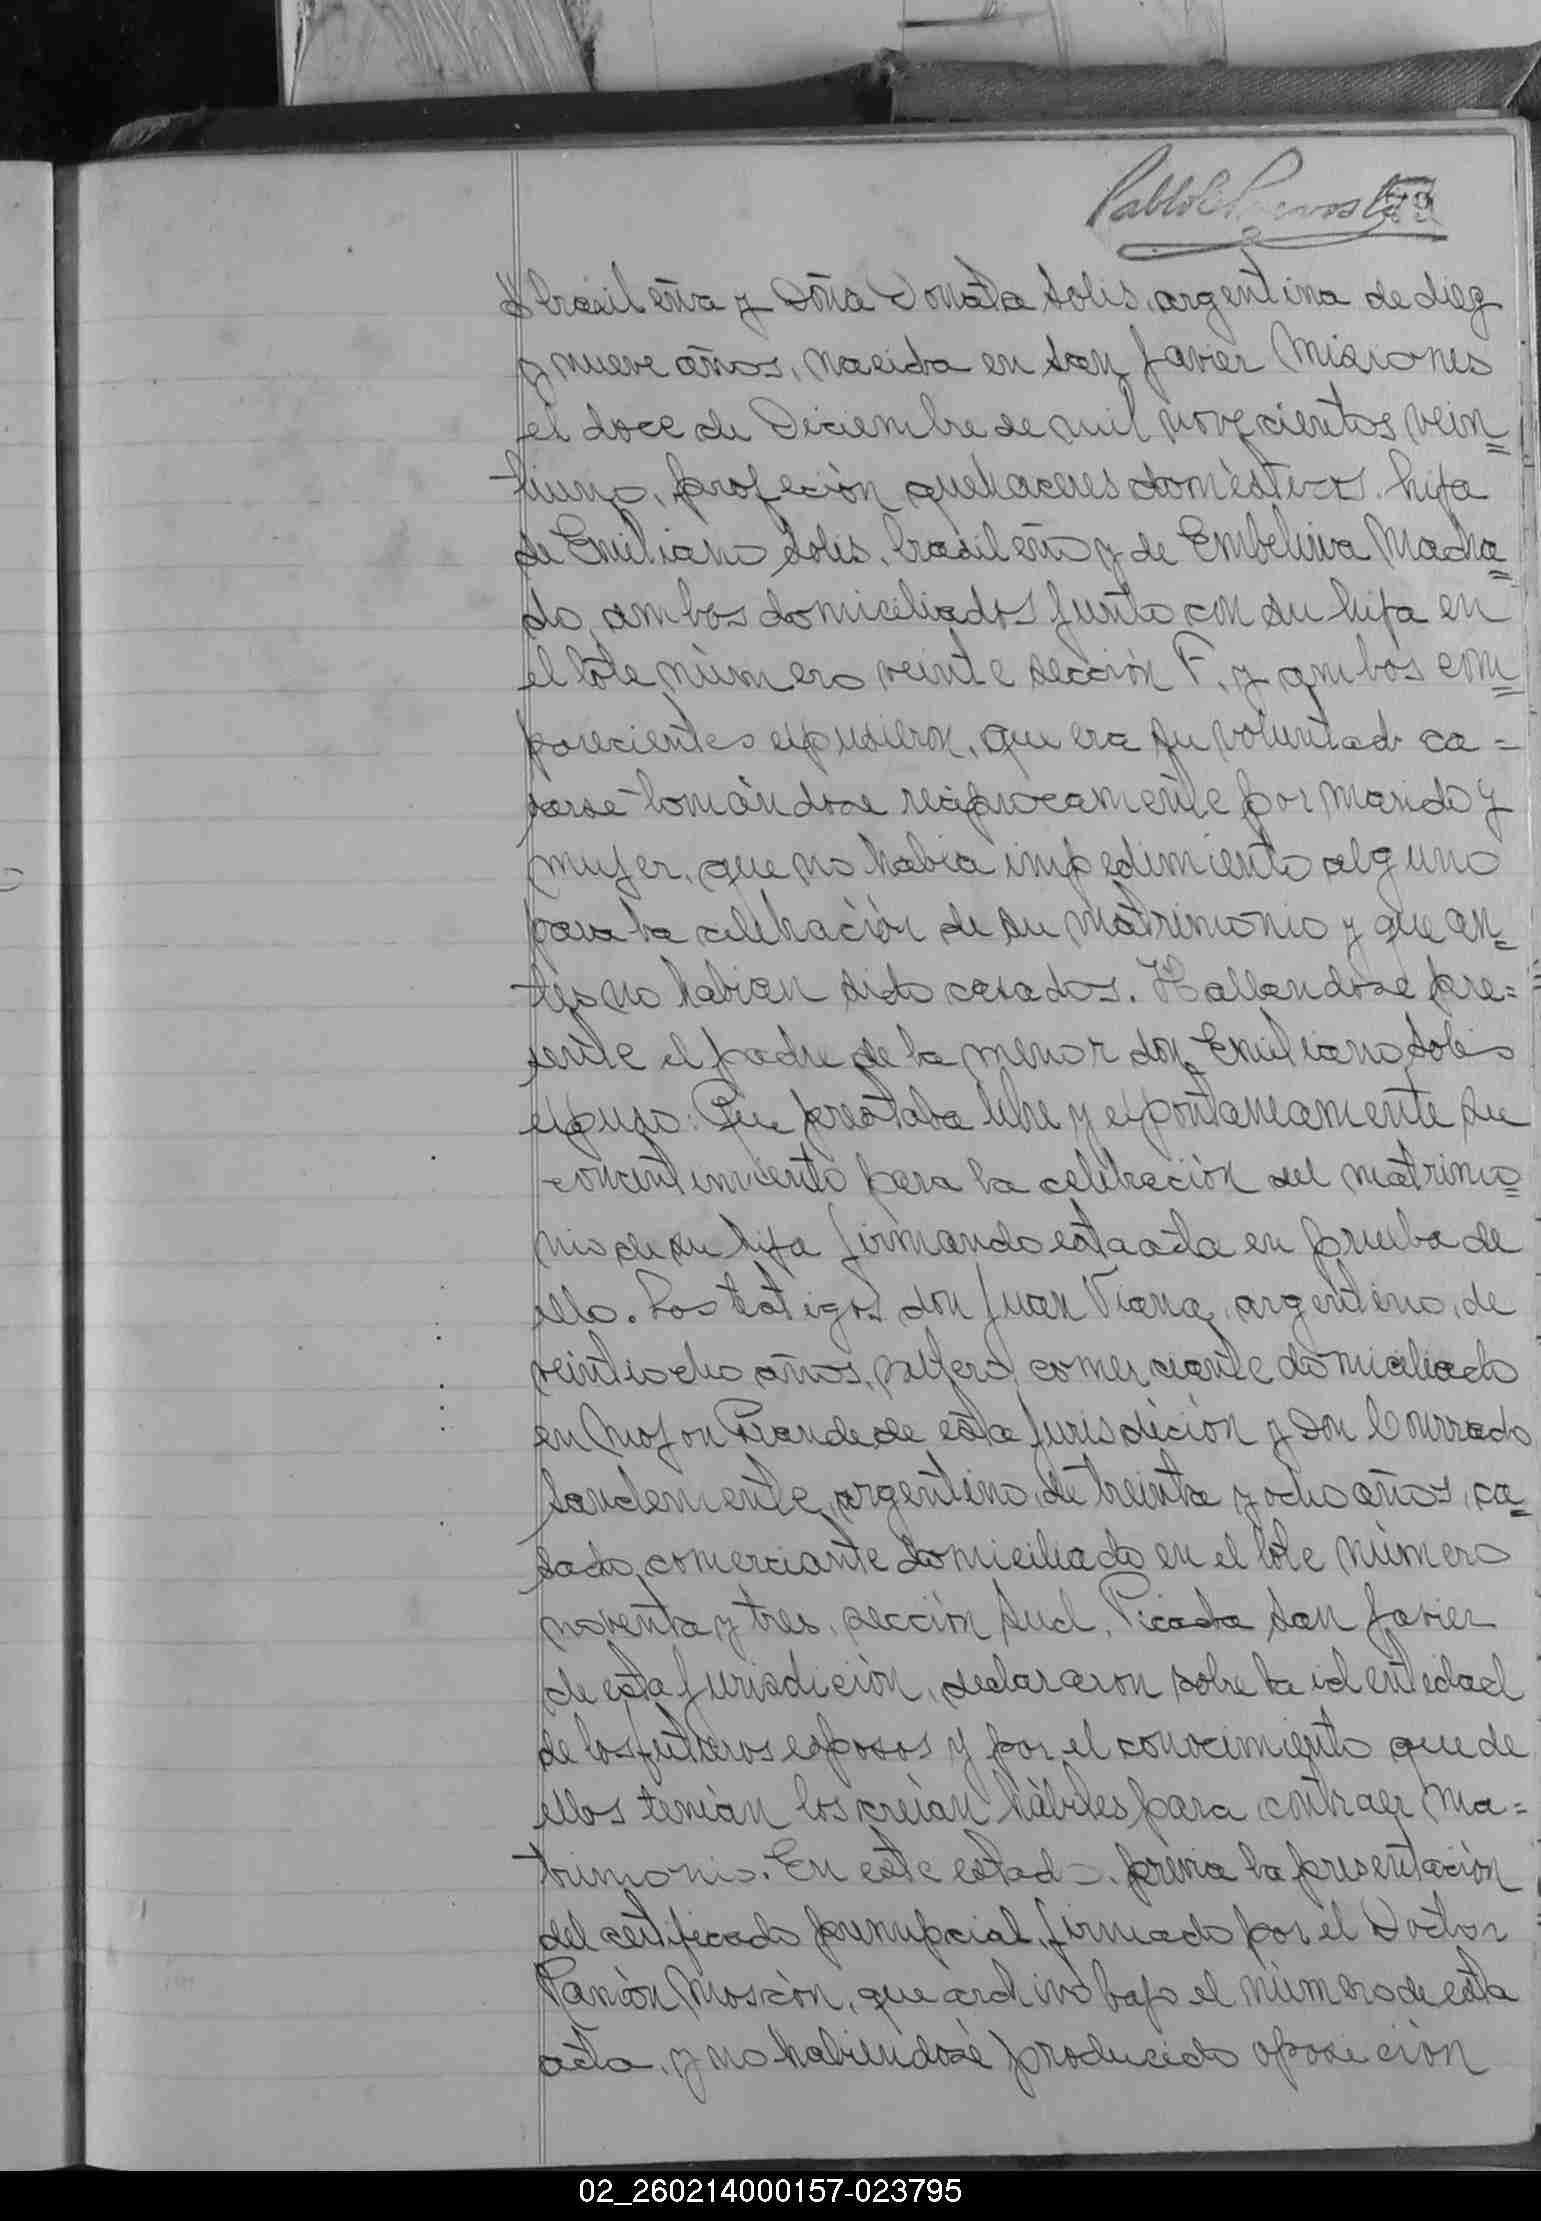 brasileña y Doña Donata Solis, argentina de diez
y nueve años, nacida en San Javier Misiones
el doce de Diciembre de mil novecientos vein=
tiuno, profeción quehaceres domésticos, hija
de Emiliano Solis, brasileño y de Embelina Macha=
do, ambos domiciliados junto con su hija en
el lote número veinte sección F. y ambos com=
parecientes expusieron, que era su voluntad ca=
sarse tomándose reciprocamente por marido y
mujer, que no habia impedimiento alguno
para la celebración de su matrimonio y que an=
tes no habian sido casados. Hallandose pre=
sente el padre de la menor don Emiliano Solis
expuso: Que prestaba libre y expontaneamente su
concentimiento para la celebración del matrimo=
nio de su hija firmando esta acta en prueba de
ello. Los testigos don Juan Viana, argentino, de
veintiocho años, soltero, comerciante domiciliado
en Mojon Grande de esta jurisdición y don Conrrado
argentino, de treinta y ocho años, ca=
sado, comerciante domiciliado en el lote número
noventa y tres, sección Sud, Picada San Javier
de esta jurisdición, declararon sobre la identidad
de los futuros esposos y por el conocimiento que de
ellos tenian los creian hábiles para contraer ma=
trimonio. En este estado, previa la presentación
del certificado prenupcial, firmado por el Doctor
Ramón que archivo bajo el número de esta
acta, y no habiendose producido oposición
02_260214000157-023795